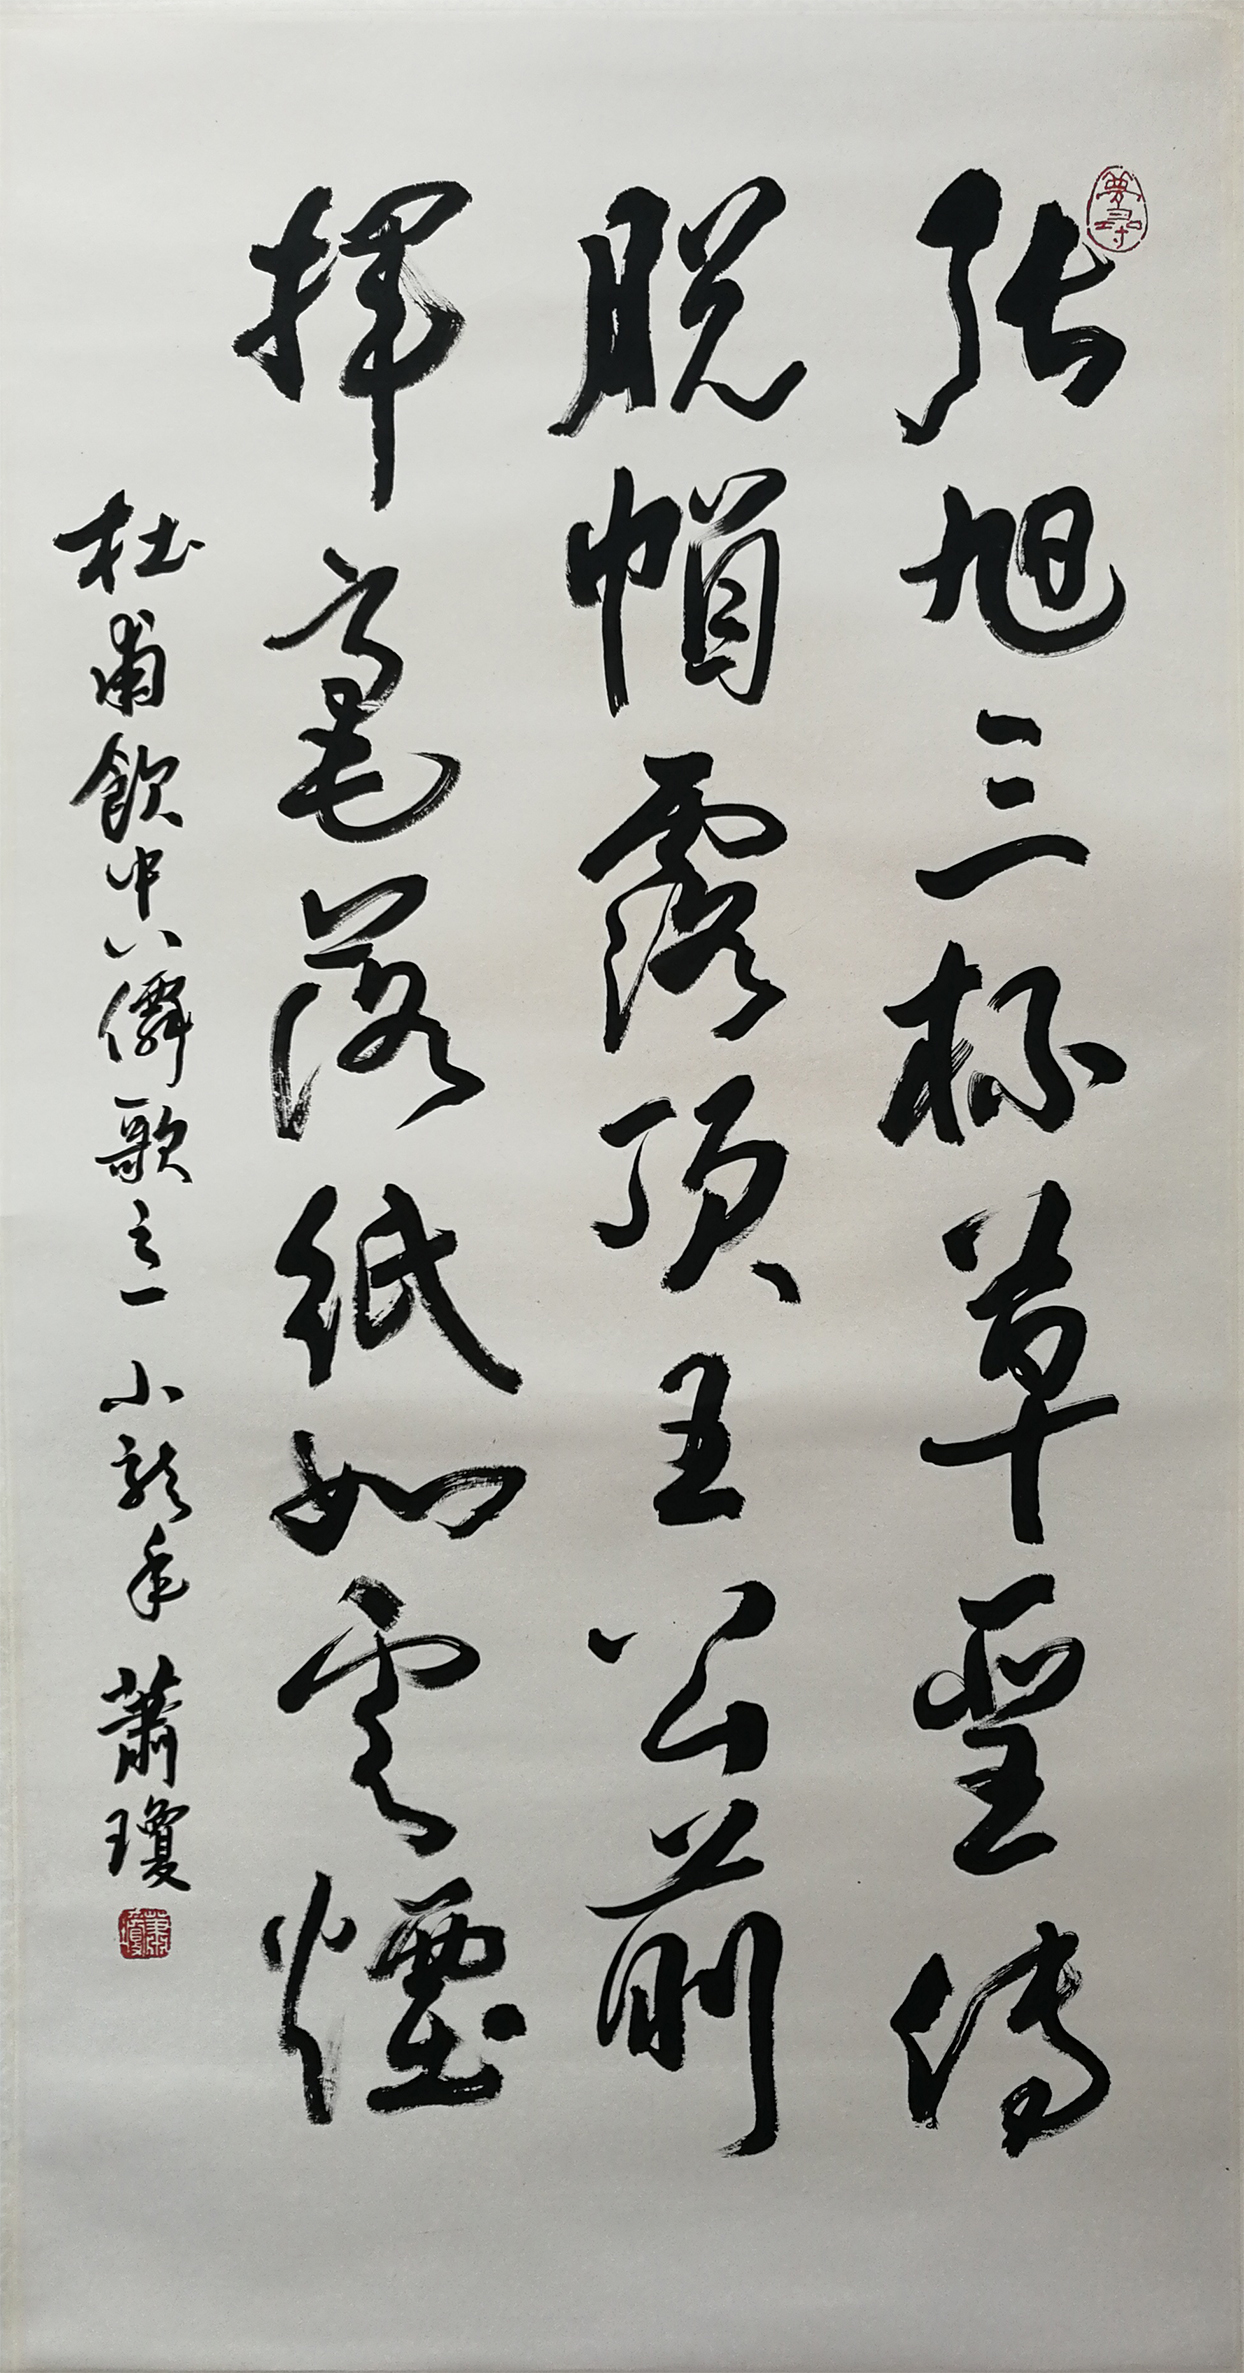 張旭三杯草聖傳
脱帽露頂王公前
揮毫落紙如雲煙
杜甫飲中八僊歌之一 小龍年 蕭瓊
蕭瓊